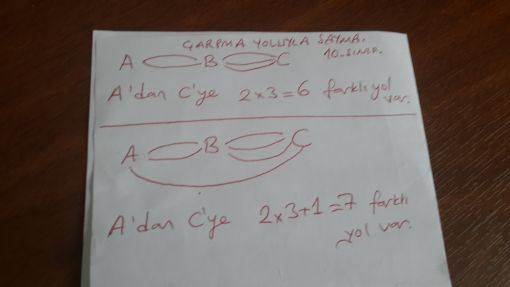 ÇARPMA YOLUYLA SAYMA.
10. SINIF.
A B C
A'dan C'ye 2x3=6 farklı yol
var.
A B C
A'dan C'ye 2x3+1=7 farklı
yol var.